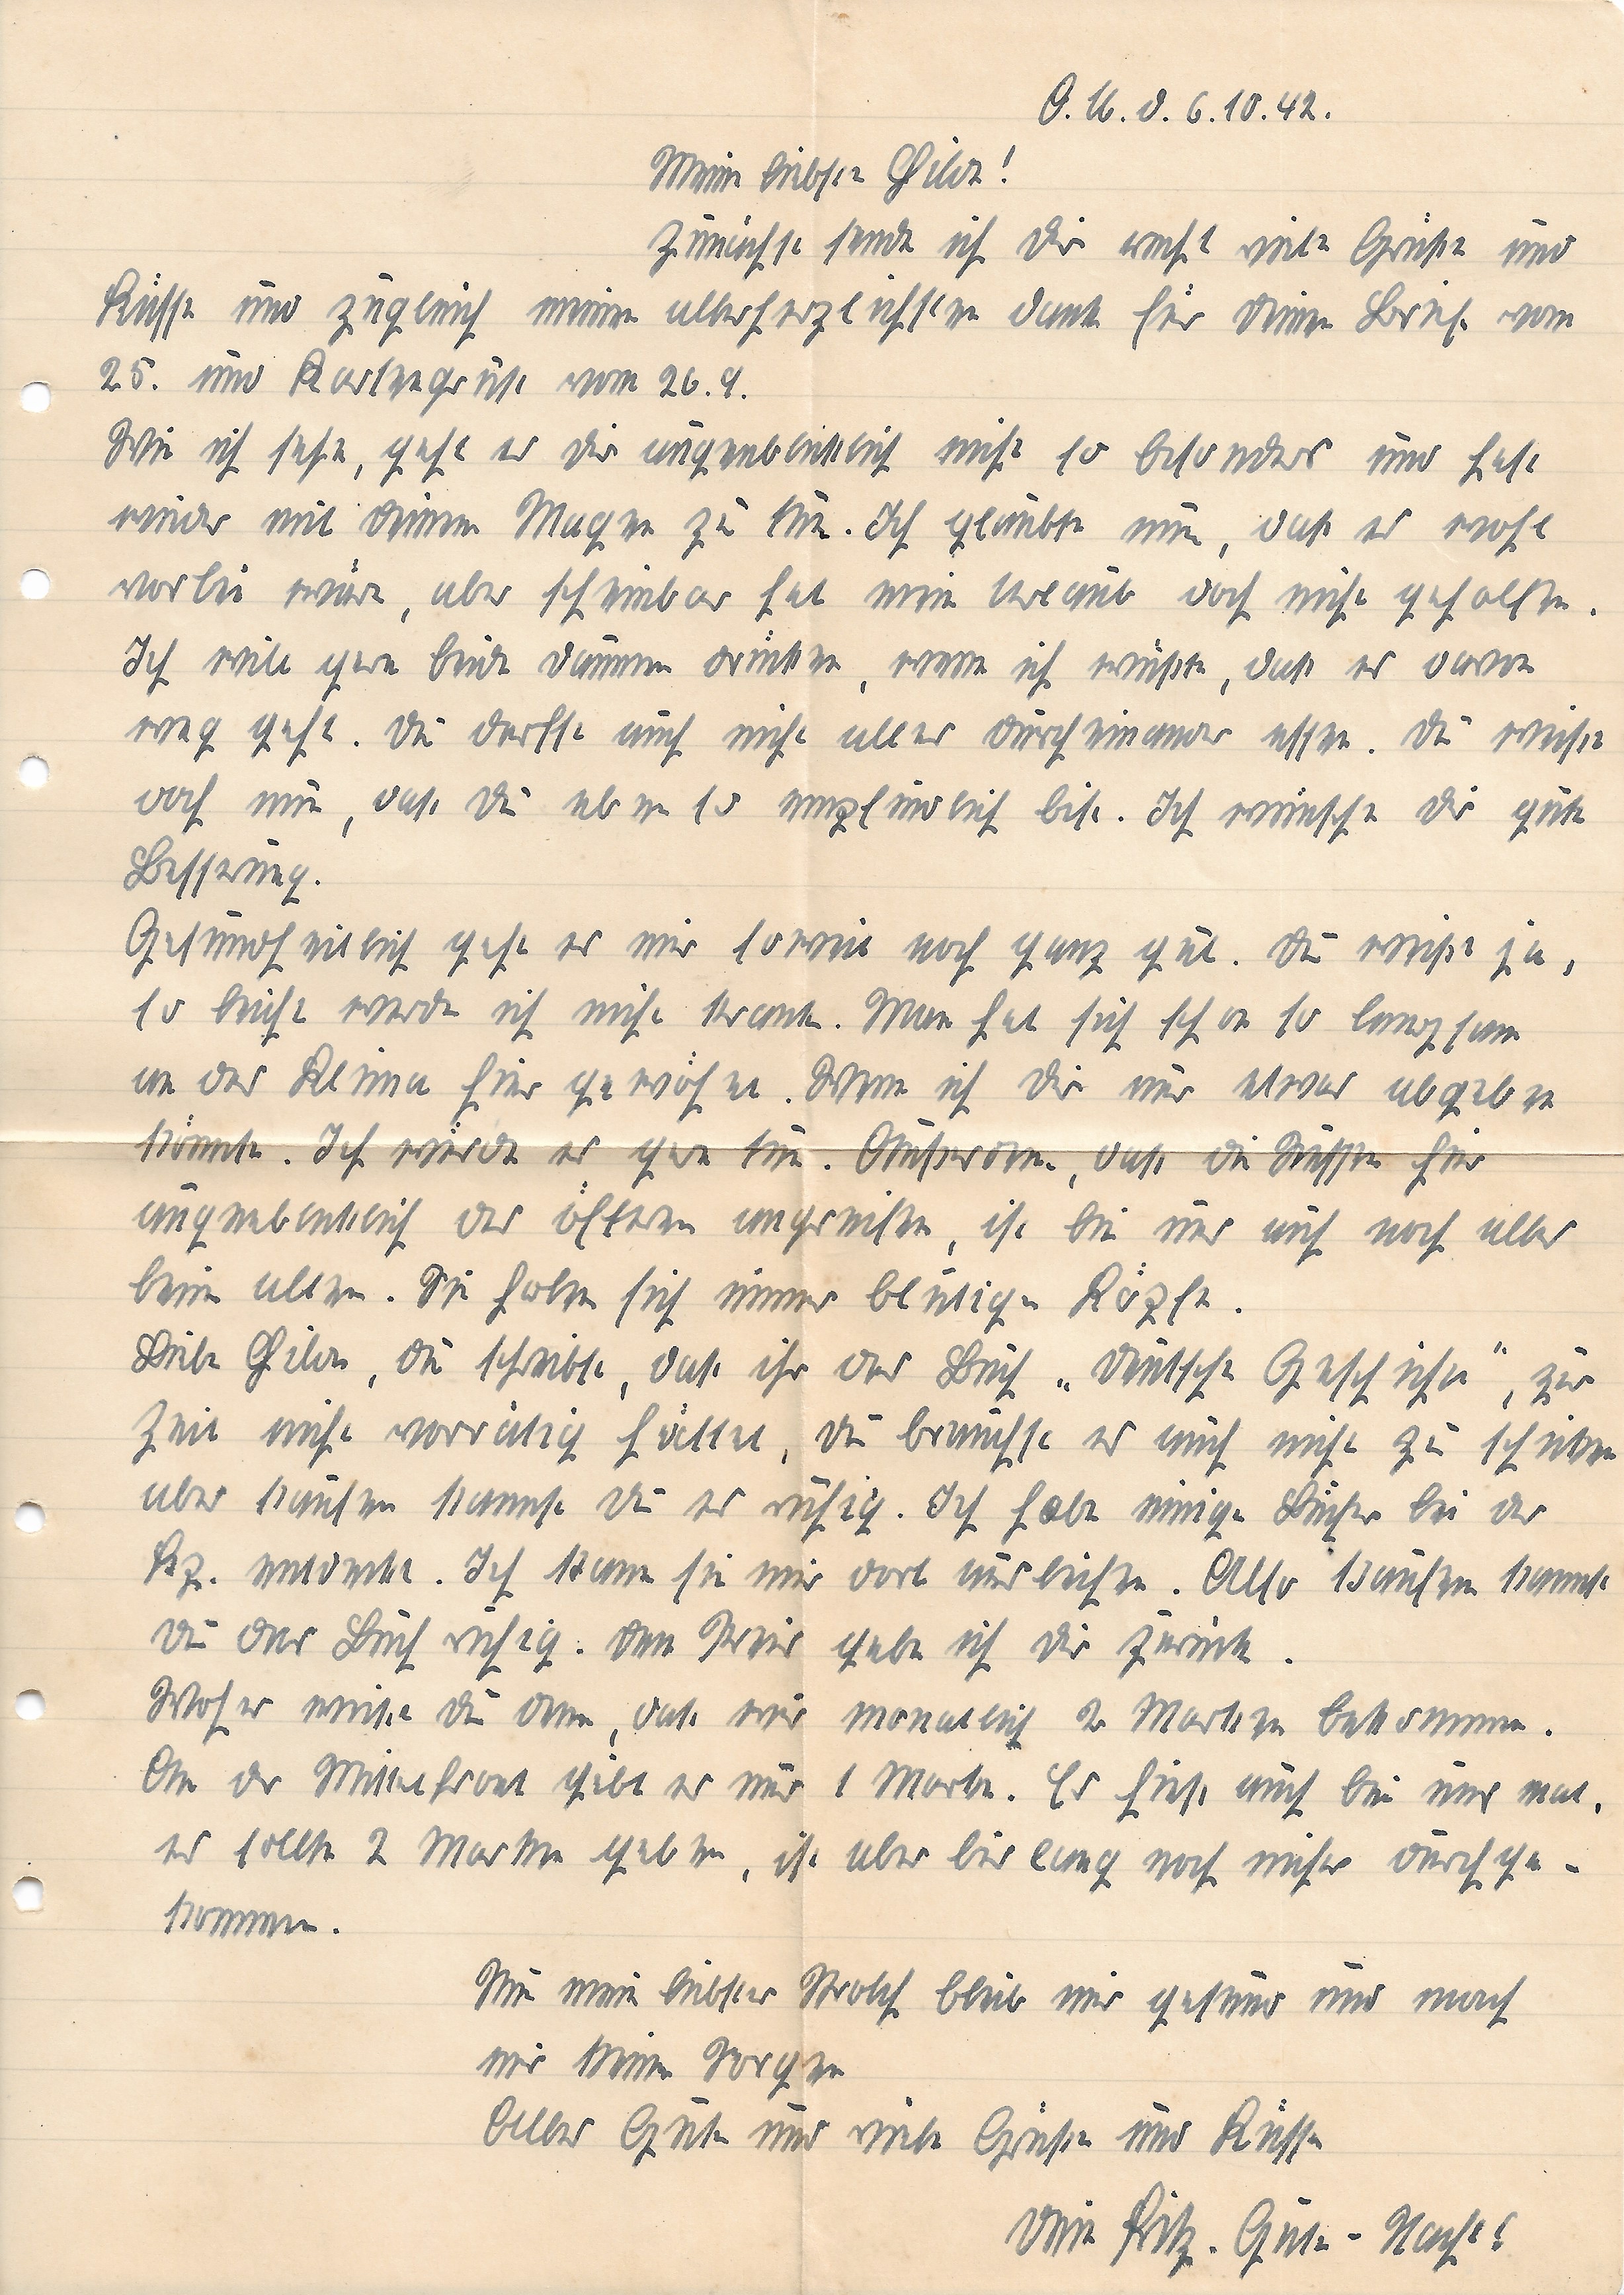 O.U. d. 6.10.42.
Meine liebste Hilde!
Zunächst sende ich Dir recht viele Grüße und
Küsse und zugleich meinen allerherzlichsten Dank für Deinen Brief vom
25. und Kartengruß vom 26.9.
Wie ich sehe, geht es Dir augenblicklich nicht so besonders und hast
wieder mit Deinem Magen zu tun. Ich glaubte nun, daß es wohl
vorbei wäre, aber scheinbar hat mein Urlaub doch nicht geholfen.
Ich will gern beide Daumen drücken, wenn ich wüßte, daß es davon
weg geht. Du darfst auch nicht alles durcheinander essen. Du weißt
doch nun, daß Du eben so empfindlich bist. Ich wünsche Dir gute
Besserung.
Gesundheitlich geht es mir soweit noch ganz gut. Du weißt ja,
so leicht werde ich nicht krank. Man hat sich schon so langsam
an das Klima hier gewöhnt. Wenn ich Dir nur etwas abgeben
könnte. Ich würde es gern tun. Außerdem, daß die Russen hier
augenblicklich des öfteren angreifen, ist bei uns auch noch alles
beim alten. Sie holen sich immer blutige Köpfe.
Liebe Hilde, Du schreibst, daß ihr das Buch „Deutsche Geschichte", zur
Zeit nicht vorrätig hättet, Du brauchst es auch nicht zu schicken
aber kaufen kannst Du es ruhig. Ich habe einige Bücher bei der
Kp. entdeckt. Ich kann sie mir dort ausleihen. Also kaufen kannst
Du das Buch ruhig. Den Preis gebe ich Dir zurück.
Woher weißt Du denn, daß wir monatlich 2 Marken bekommen.
An der Mittelfront gibt es nur 1 Marke. Es hieß auch bei uns mal,
es sollte 2 Marken geben, ist aber bislang noch nichts durchge-
kommen.
Nun mein liebster Strolch bleib mir gesund und mach
mir keine Sorgen
Alles Gute und viele Grüße und Küsse
Dein Fritz. Gute-Nacht!